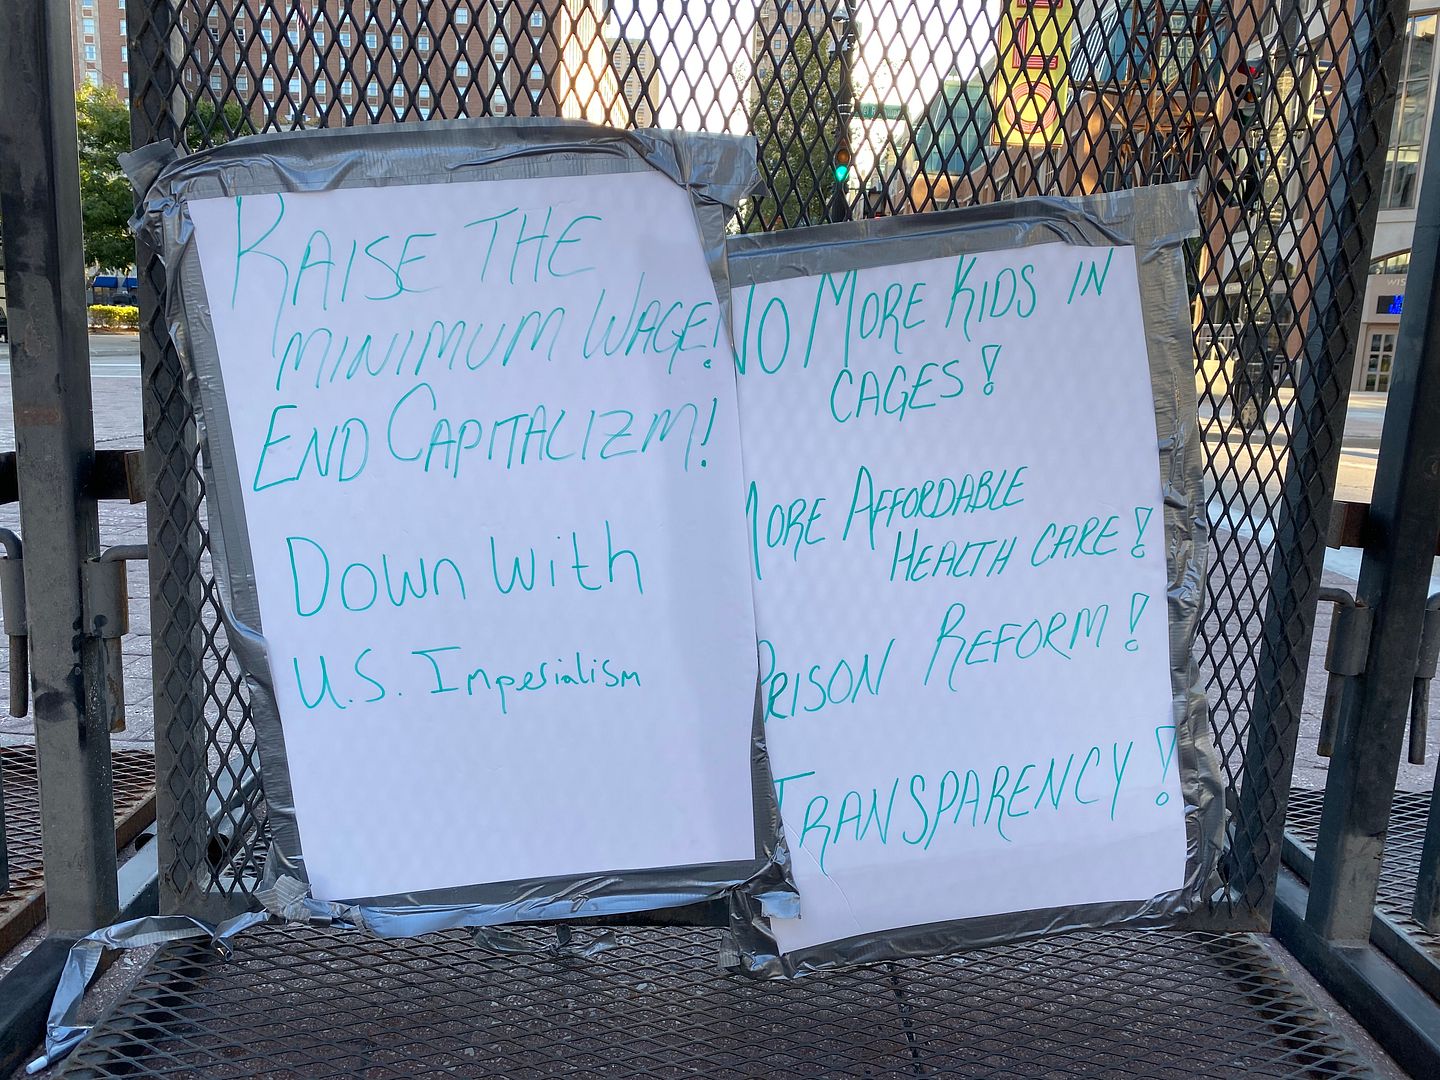 RAISE THE
MINIMUM WAGE!
END CAPITALIZM!
DOWN WITH
U.S. Imperialism
NO MORE KIDS IN
CAGES!
MORE AFFORDABLE
HEALTH CARE!
PRISON REFORM!
TRANSPARENCY!
WIS